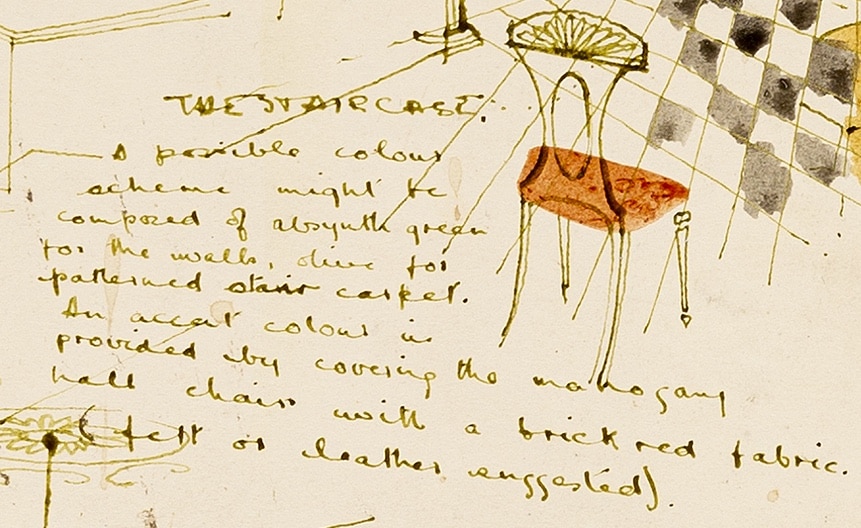 THE STAIRCASE:
A possible colour
scheme might be
composed of absynth green
for the walls, olive for
patterned stair carpet.
An accent colour is
provided by covering the mahogany
hall chair with a brick red fabric.
(felt or leather suggested).